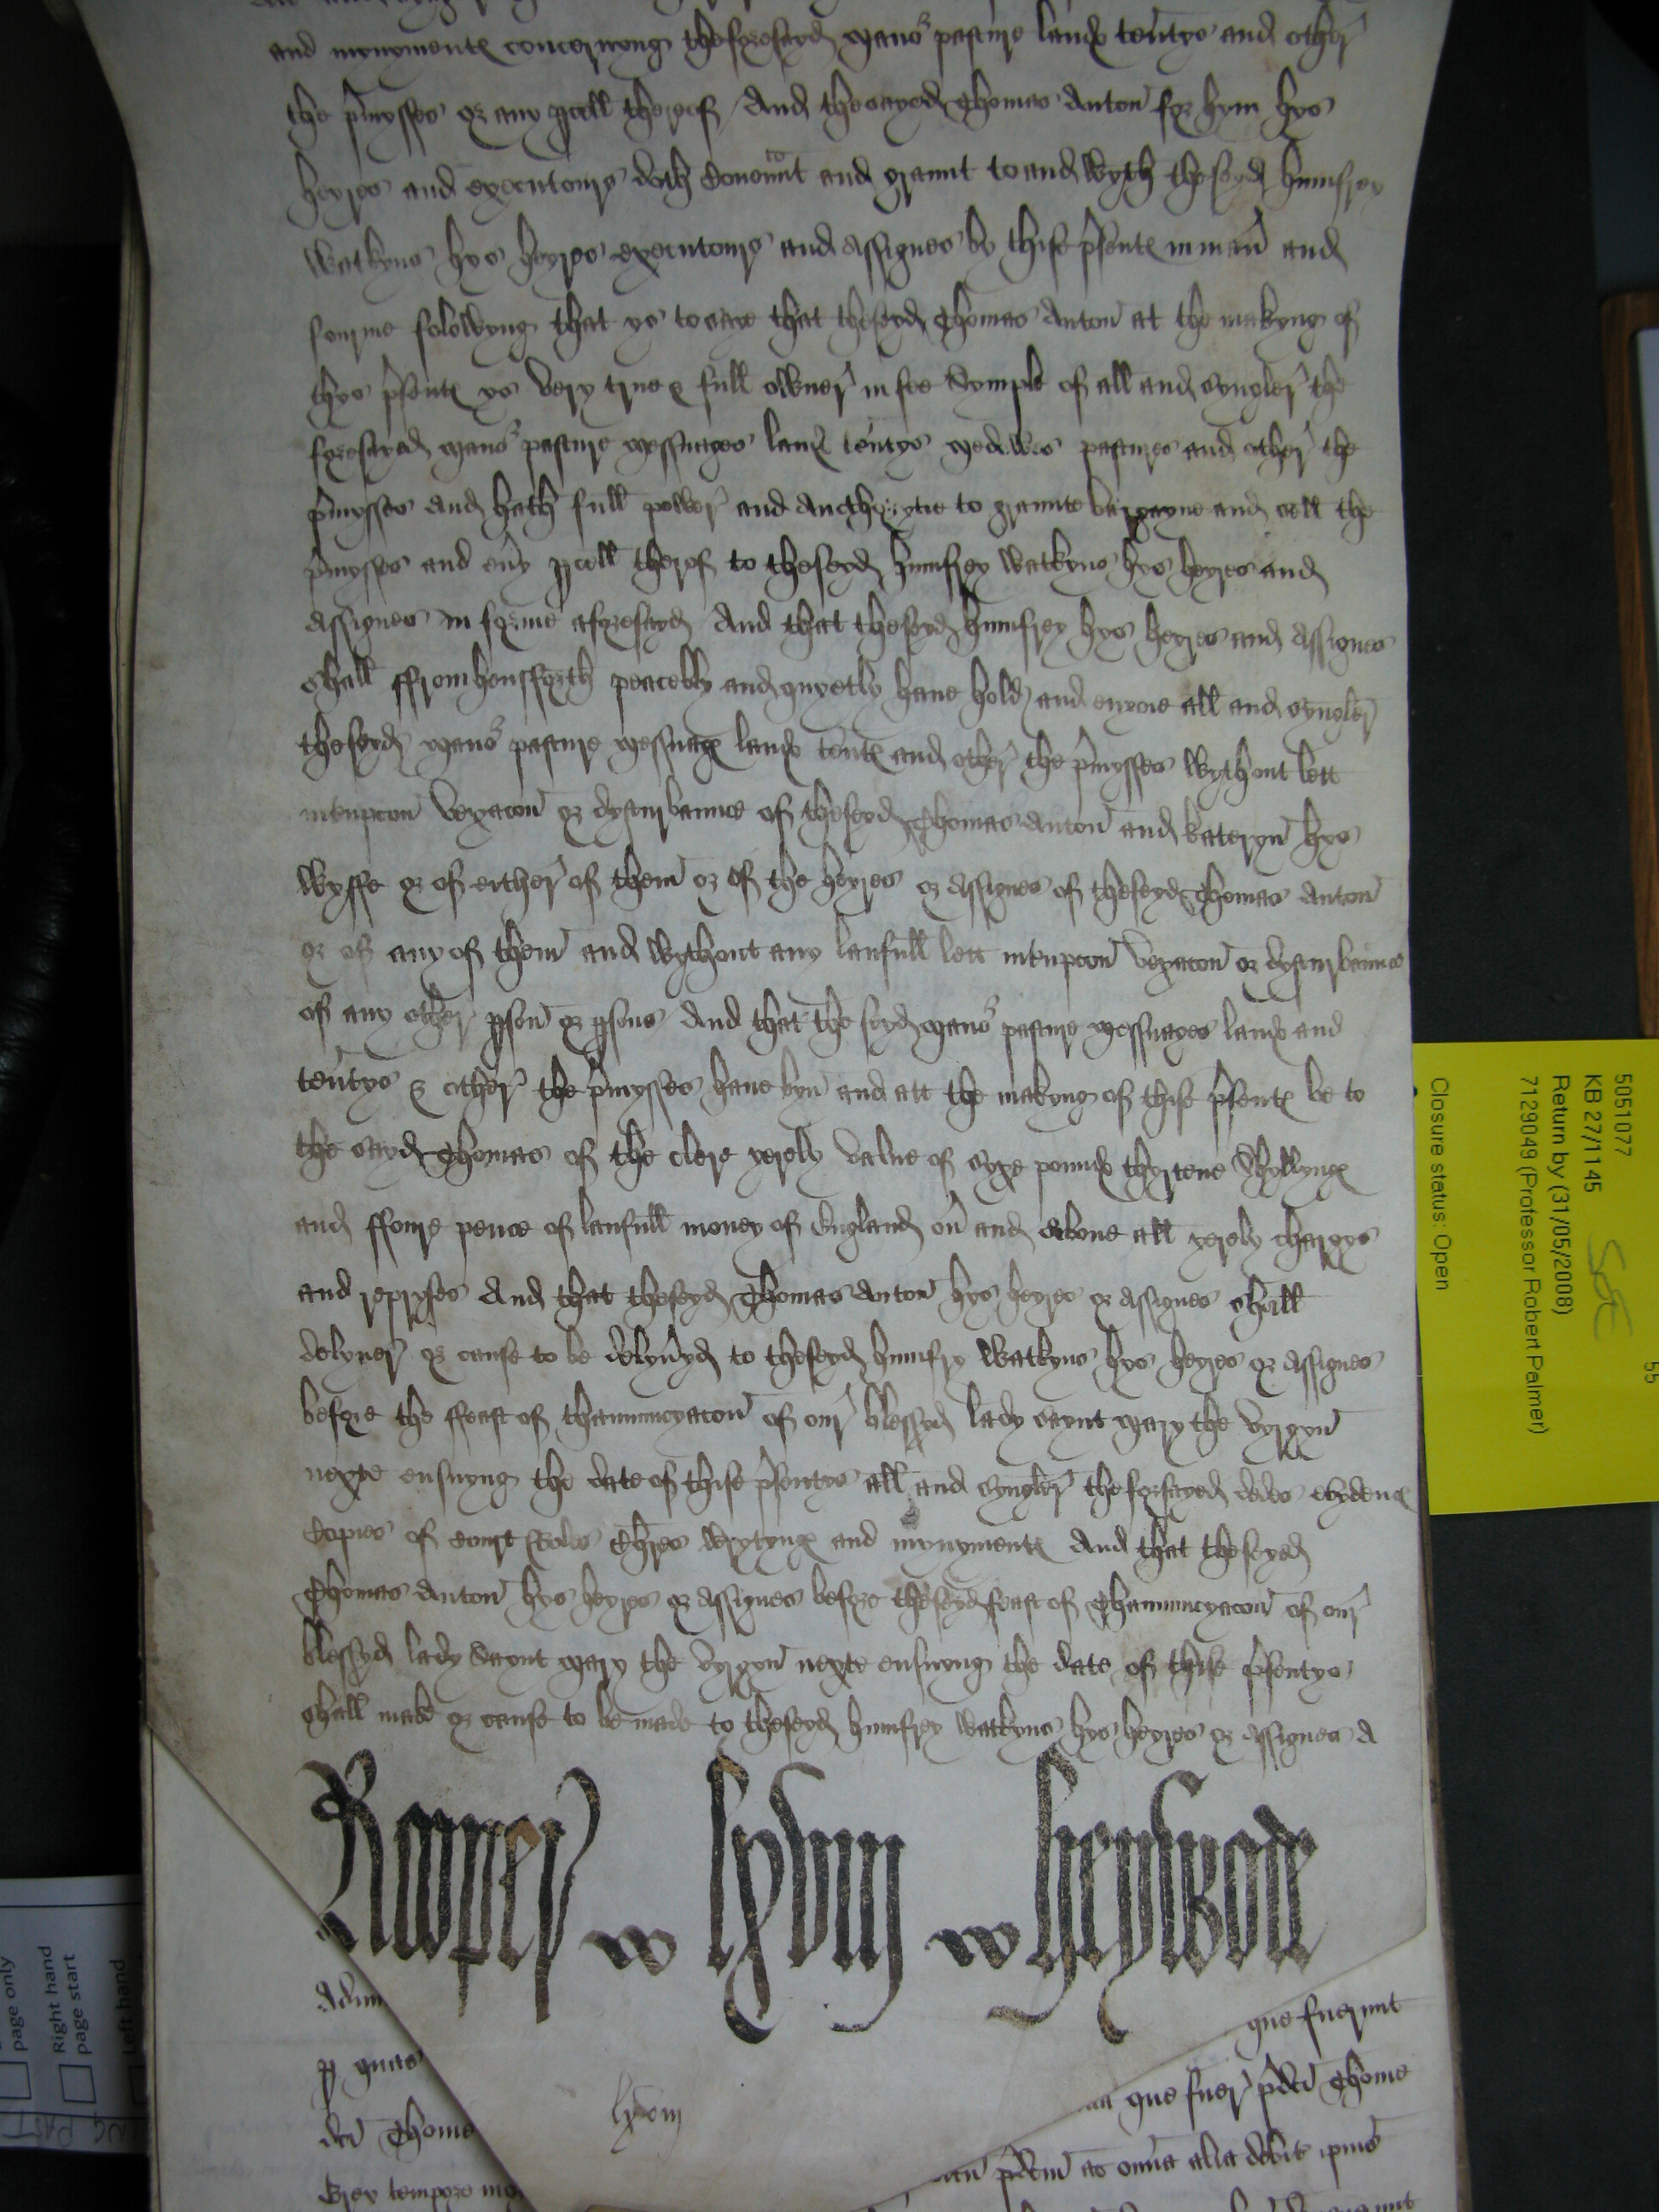 and mynymentes concernyng theforesayd manor pasture landes tentys and other
the pmysses or any pcell therof And thesayed Thomas Anton for hym hys
heyres and executours doth Covonnt and graunt to and wyth theseyd humfrey
Watkyns hys heyres executours and assignes by thise psentes in man and
fourme folowyng that ys to saye that theseyd Thomas Anton at the makyng of
thys psentes ys very true & full owner in fee Symple of all and syngler the
foresayed manor pasture messuages landes tentys medowes pastures and other the
pmysses And hath full power and Aucthorytie to graunte bargayne and sell the
pmysses and eny pcell therof to theseyd humfrey Watkyns hys heyres and
Assignes in forme aforesayd And that theseyd humfrey hys heyres and Assignes
shall ffromhensforth peacebly and quyetly have hold and enyoie all and syngler
theseyd manor pasture messuages landes tentes and other the pmysses wythout lett
intrupcon vexacon or dysturbaunce of theseyd Thomas Anton and kateryn hys
wyffe or of either of them or of the heyres or Assignes of theseyd Thomas Anton
or of any of them and wythout any laufull lett intrupcon vexacon or dysturbaunce
of any other pson or psons And that the seyd manor pasture messuages landes and
tentys & other the pmysses have byn and att the makyng of thise psentes be to
the sayd Thomas of the clere yerely value of syxe poundes thyrtene Shyllynges
and ffoure pence of laufull money of England ov and Above all yerely chargys
and repryses And that theseyd Thomas Anton hys heyres or Assignes shall
delyuer or cause to be delyvyd to theseyd humfry Watkyns hys heyres or Assignes
before the ffeast of thannuncyacon of our blessyd lady saynt mary the vyrgyn
nexte ensuyng the date of thise psentys all and syngler theforsayed dedes evydences
Copies of court Rolles Chres wrytynges and mynymentes And that theseyd
Thomas Anton hys heyres or Assignes before theseyd feast of Thannuncyacon of our
blessyd lady Saynt mary the vyrgyn nexte ensuyng the date of thise psentys
shall make or cause to be made to theseyd humfrey Watkyns hys heyres or Assignes A
Roper lxviij heywode
Adum
que fuerunt
p quas
que fuer pdci Thome
dci Thome
lxviij
pdcm ac omia alia debit ipius
Grev tempore
5051077
KB 27/1145
Return by (31/05/2008)
7129049 (Professor Robert Palmer)
Closure status: Open
55
page only
Right hand
page start
Left hand